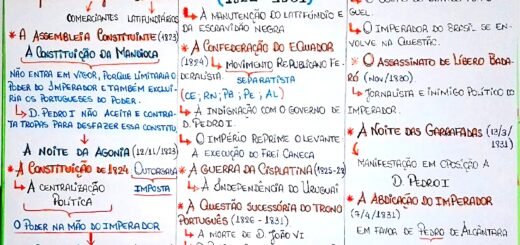 COMERCIANTES LATIFUNDIÁRIOS
* A ASSEMBLEIA CONSTITUINTE (1823)
A CONSTITUIÇÃO DA MANDIOCA
NÃO ENTRA EM VIGOR, PORQUE LIMITARIA O
PODER DO IMPERADOR E TAMBÉM EXCLUIR
IA OS PORTUGUESES DO PODER.
↳ D. PEDRO I NÃO ACEITA E CONTRA
TA TROPAS PARA DESFAZER ESSA CONSTITU
A NOITE DA AGONIA (12/11/1823)
* A CONSTITUIÇÃO DE 1824 OUTORGADA
IMPOSTA
↳ A CENTRALIZAÇÃO
POLÍTICA
O PODER NA MÃO DO IMPERADOR
↳ A MANUTENÇÃO DO LATIFÚNDIO E
DA ESCRAVIDÃO NEGRA
* A CONFEDERAÇÃO DO EQUADOR
(1824) ↳ MOVIMENTO REPUBLICANO FE
DERALISTA
SEPARATISTA
(CE, RN, PB, PE, AL)
↳ A INDIGNAÇÃO COM O GOVERNO DE
D. PEDRO I.
↳ O IMPÉRIO REPRIME O LEVANTE
A EXECUÇÃO DO FREI CANECA
* A GUERRA DA CISPLATINA (1825-28)
↳ A INDEPENDÊNCIA DO URUGUAI
* A QUESTÃO SUCESSÓRIA DO TRONO
PORTUGUÊS (1826 - 1831)
↳ A MORTE DE D. JOÃO VI
GUEL
↳ O IMPERADOR DO BRASIL SE EN-
VOLVE NA QUESTÃO.
* O ASSASSINATO DE LÍBERO BADA-
RÓ (NOV/1830)
↳ JORNALISTA E INIMIGO POLÍTICO DO
IMPERADOR.
* A NOITE DAS GARRAFADAS (13/3/
1831)
MANIFESTAÇÃO EM OPOSIÇÃO A
D. PEDRO I
* A ABDICAÇÃO DO IMPERADOR
(7/4/1831)
EM FAVOR DE PEDRO DE ALCÂNTARA